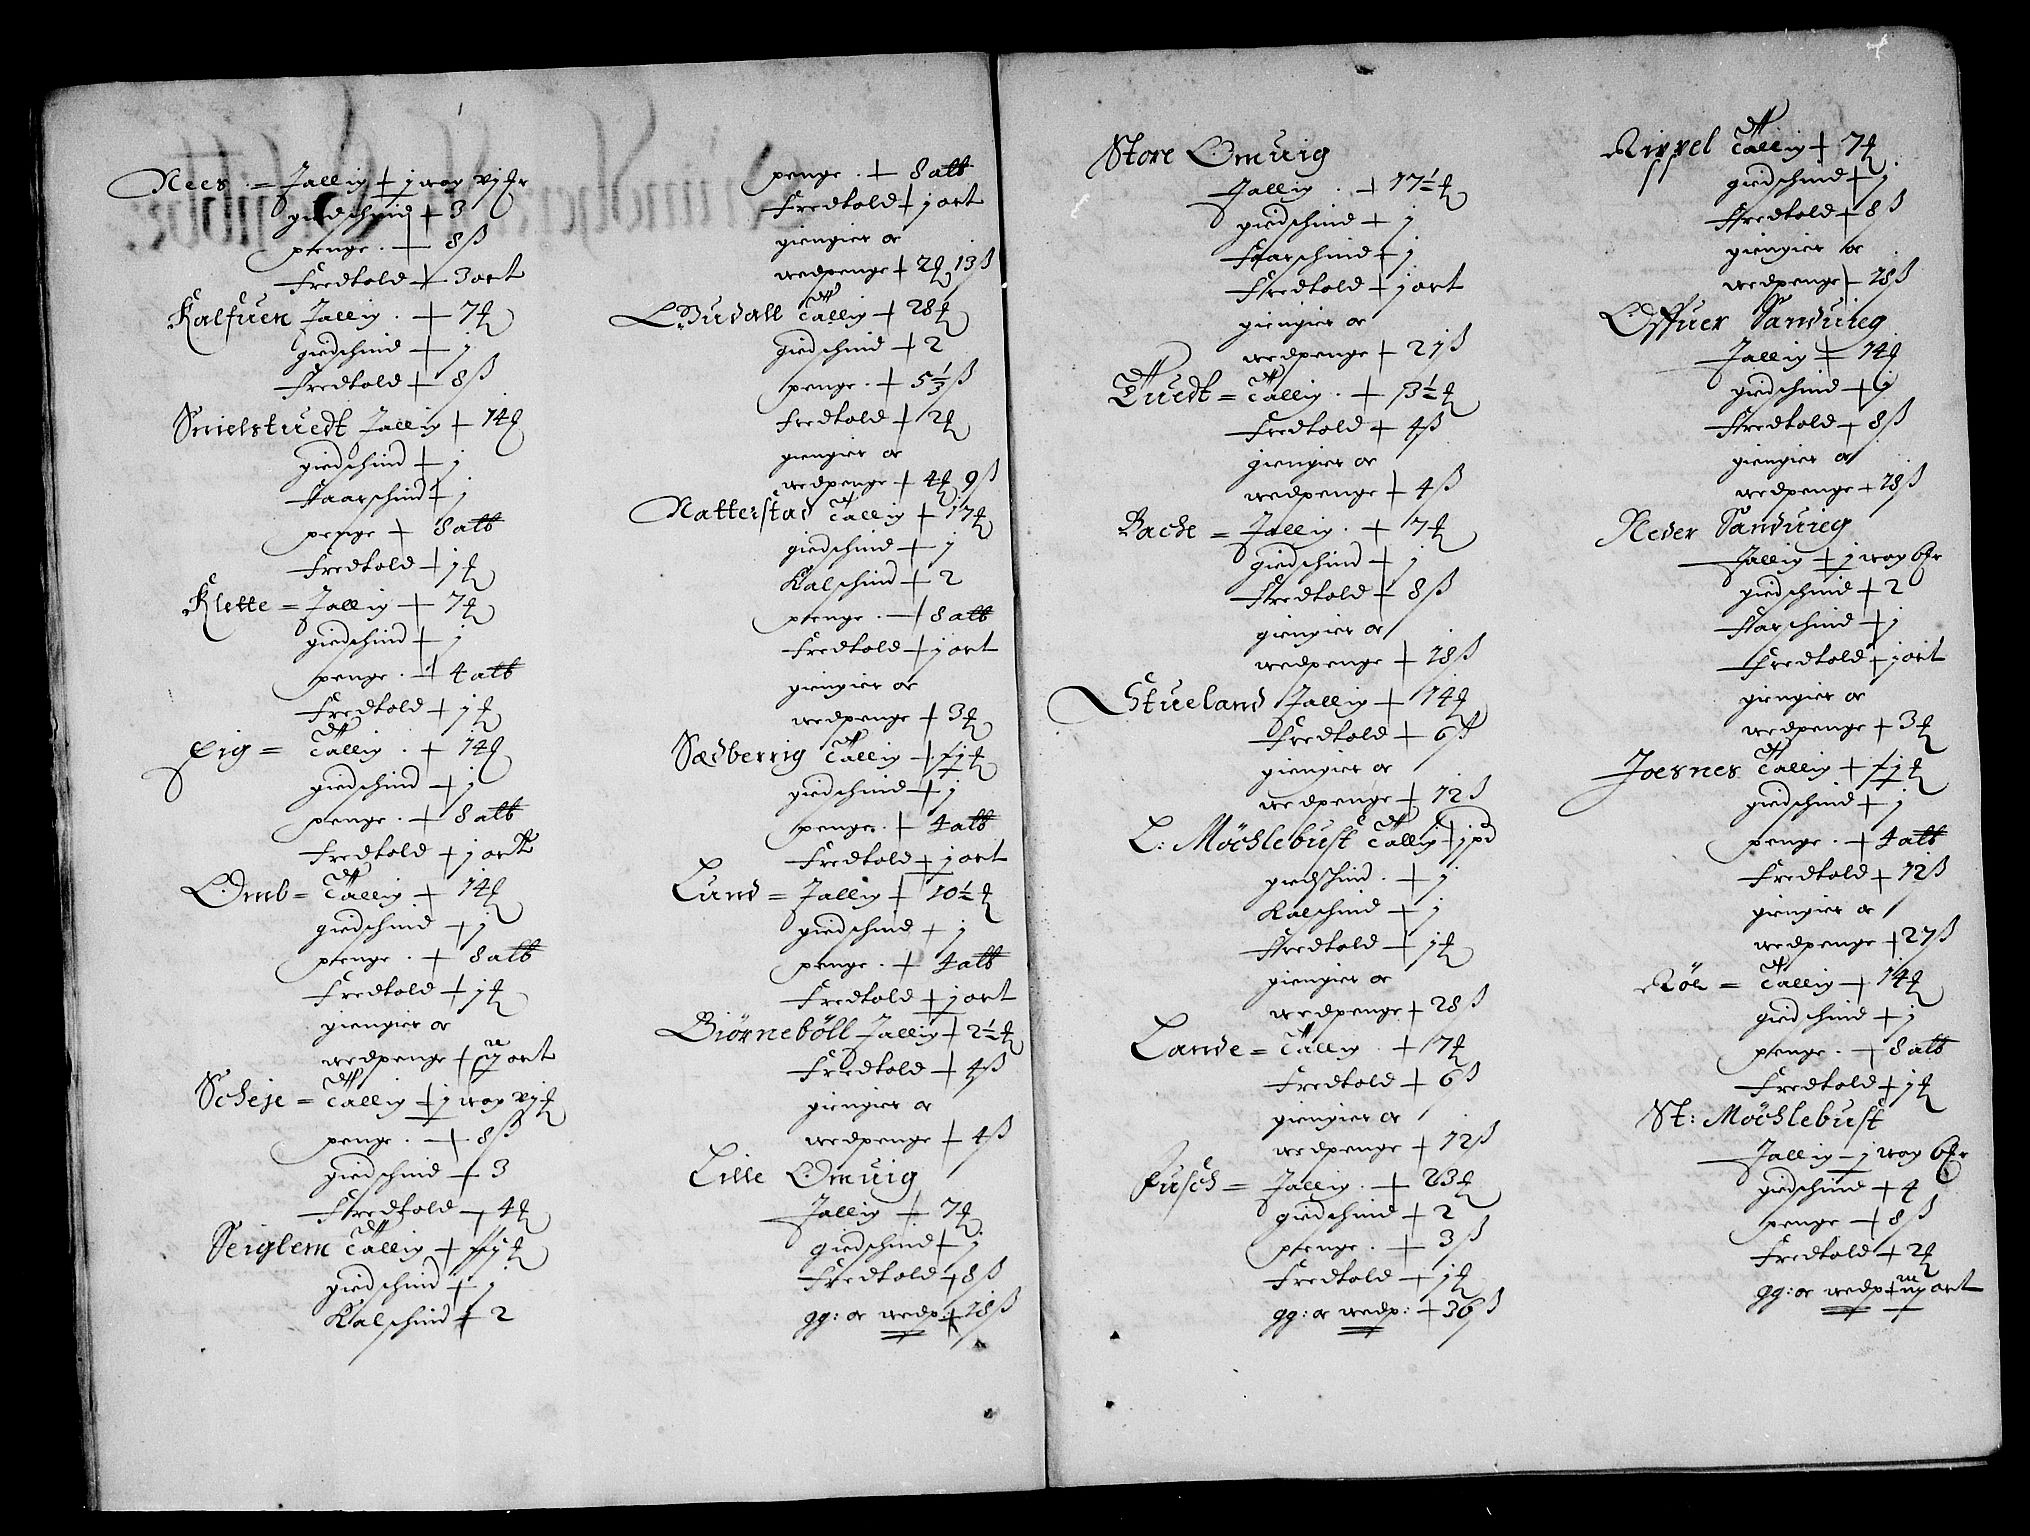 Nees = Tallig + j wog vj ℔r
giedschind + 3
penge . + 8 ß
Fredtold + 3 ort
Kalfuen Tallig . + 7 ℔
giedschind + j
Fredtold + 8 ß
Smielstuedt Tallig + 14 ℔
giedschind + j
Faarschind + j
penge + 8 alb
Fredtold + j ℔
Klette = Tallig + 7 ℔
giedschind + j
penge . + 4 alb
Fredtold + j ℔
Eig = Tallig . + 14 ℔
giedschind + j
penge . + 8 alb
Fredtold + j ort
Omb = Tallig + 14 ℔
giedschind + j
penge . + 8 alb
Fredtold + j ℔
giengier or
wedpenge + ort
Scheje = Tallig + j wog vj ℔
penge . + 8 ß
giedschind + 3
Fredtold + 4 ℔
Seiglem Tallig +
giedschind + j
Kalschind + 2
penge . + 8 alb
Fredtold + j ort
giengier or
wedpenge + 2 ℔ 13 ß
Budall Tallig + 28 ℔
giedschind + 2
penge . + 5 1/3 ß
Fredtold + 2 ℔
giengier or
wedpenge + 4 ℔ 9 ß
Natterstad Tallig + 17 ℔
giedschind + j
Kalschind + 2
penge . + 8 alb
Fredtold + j ort
giengier or
wedpenge + 3 ℔
Sædberrig Tallig +
giedschind + j
penge . + 4 alb
Fredtold + j ort
Lund = Tallig + 10 1/2 ℔
giedschind + j
penge . + 4 alb
Fredtold + j ort
Biörneböll Tallig + 2 1/2 ℔
Fredtold + 4 ß
giengier or
wedpenge + 4 ß
Lille Omuig
Tallig + 7 ℔
giedschind + j
Fredtold + 8 ß
gg: or wedp: + 18 ß
Store Omuig
Tallig . + 17 1/2 ℔
giedschind + j
Faarschind + j
Fredtold + j ort
giengier or
wedpenge + 27 ß
Tuedt = Tallig . + 3 1/2 ℔
Fredtold + 4 ß
giengier or
wedpenge + 4 ß
Backe = Tallig . + 7 ℔
giedschind + j
Fredtold + 8 ß
giengier or
wedpenge + 18 ß
Stueland Tallig + 14 ℔
Fredtold + 6 ß
giengier or
wedpenge + 12 ß
L: Möchlebust Tallig + j pd
giedschind . + j
Kalschind + j
Fredtold + j ℔
giengier or
wedpenge + 28 ß
Lande = Tallig . + 7 ℔
Fredtold + 6 ß
giengier or
wedpenge + 12 ß
Fusch = Tallig . + 23 ℔
giedschind + 2
penge . + 3 ß
Fredtold + j ℔
gg: or wedp: + 36 ß
Rippel Tallig + 7 ℔
giedschind + j
Fredtold + 8 ß
giengier or
wedpenge + 18 ß
Offuer Sanduieg
Tallig + 14 ℔
giedschind + j
Fredtold + 8 ß
giengier or
wedpenge + 18 ß
Neder Sanduieg
Tallig + j wog 6 ℔r
giedschind + 2
Faarschind + j
Fredtold + j ort
giengier or
wedpenge + 3 ℔
Joesnes Tallig +
giedschind + j
penge . + 4 alb
Fredtold + 12 ß
giengier or
wedpenge + 27 ß
Röe = Tallig + 14 ℔
giedschind + j
penge . + 8 alb
Fredtold + j ℔
St: Möchlebust
Tallig + j wog 6 ℔r
giedschind + 4
penge + 8 ß
Fredtold + 2 ℔
gg: or wedp + ort